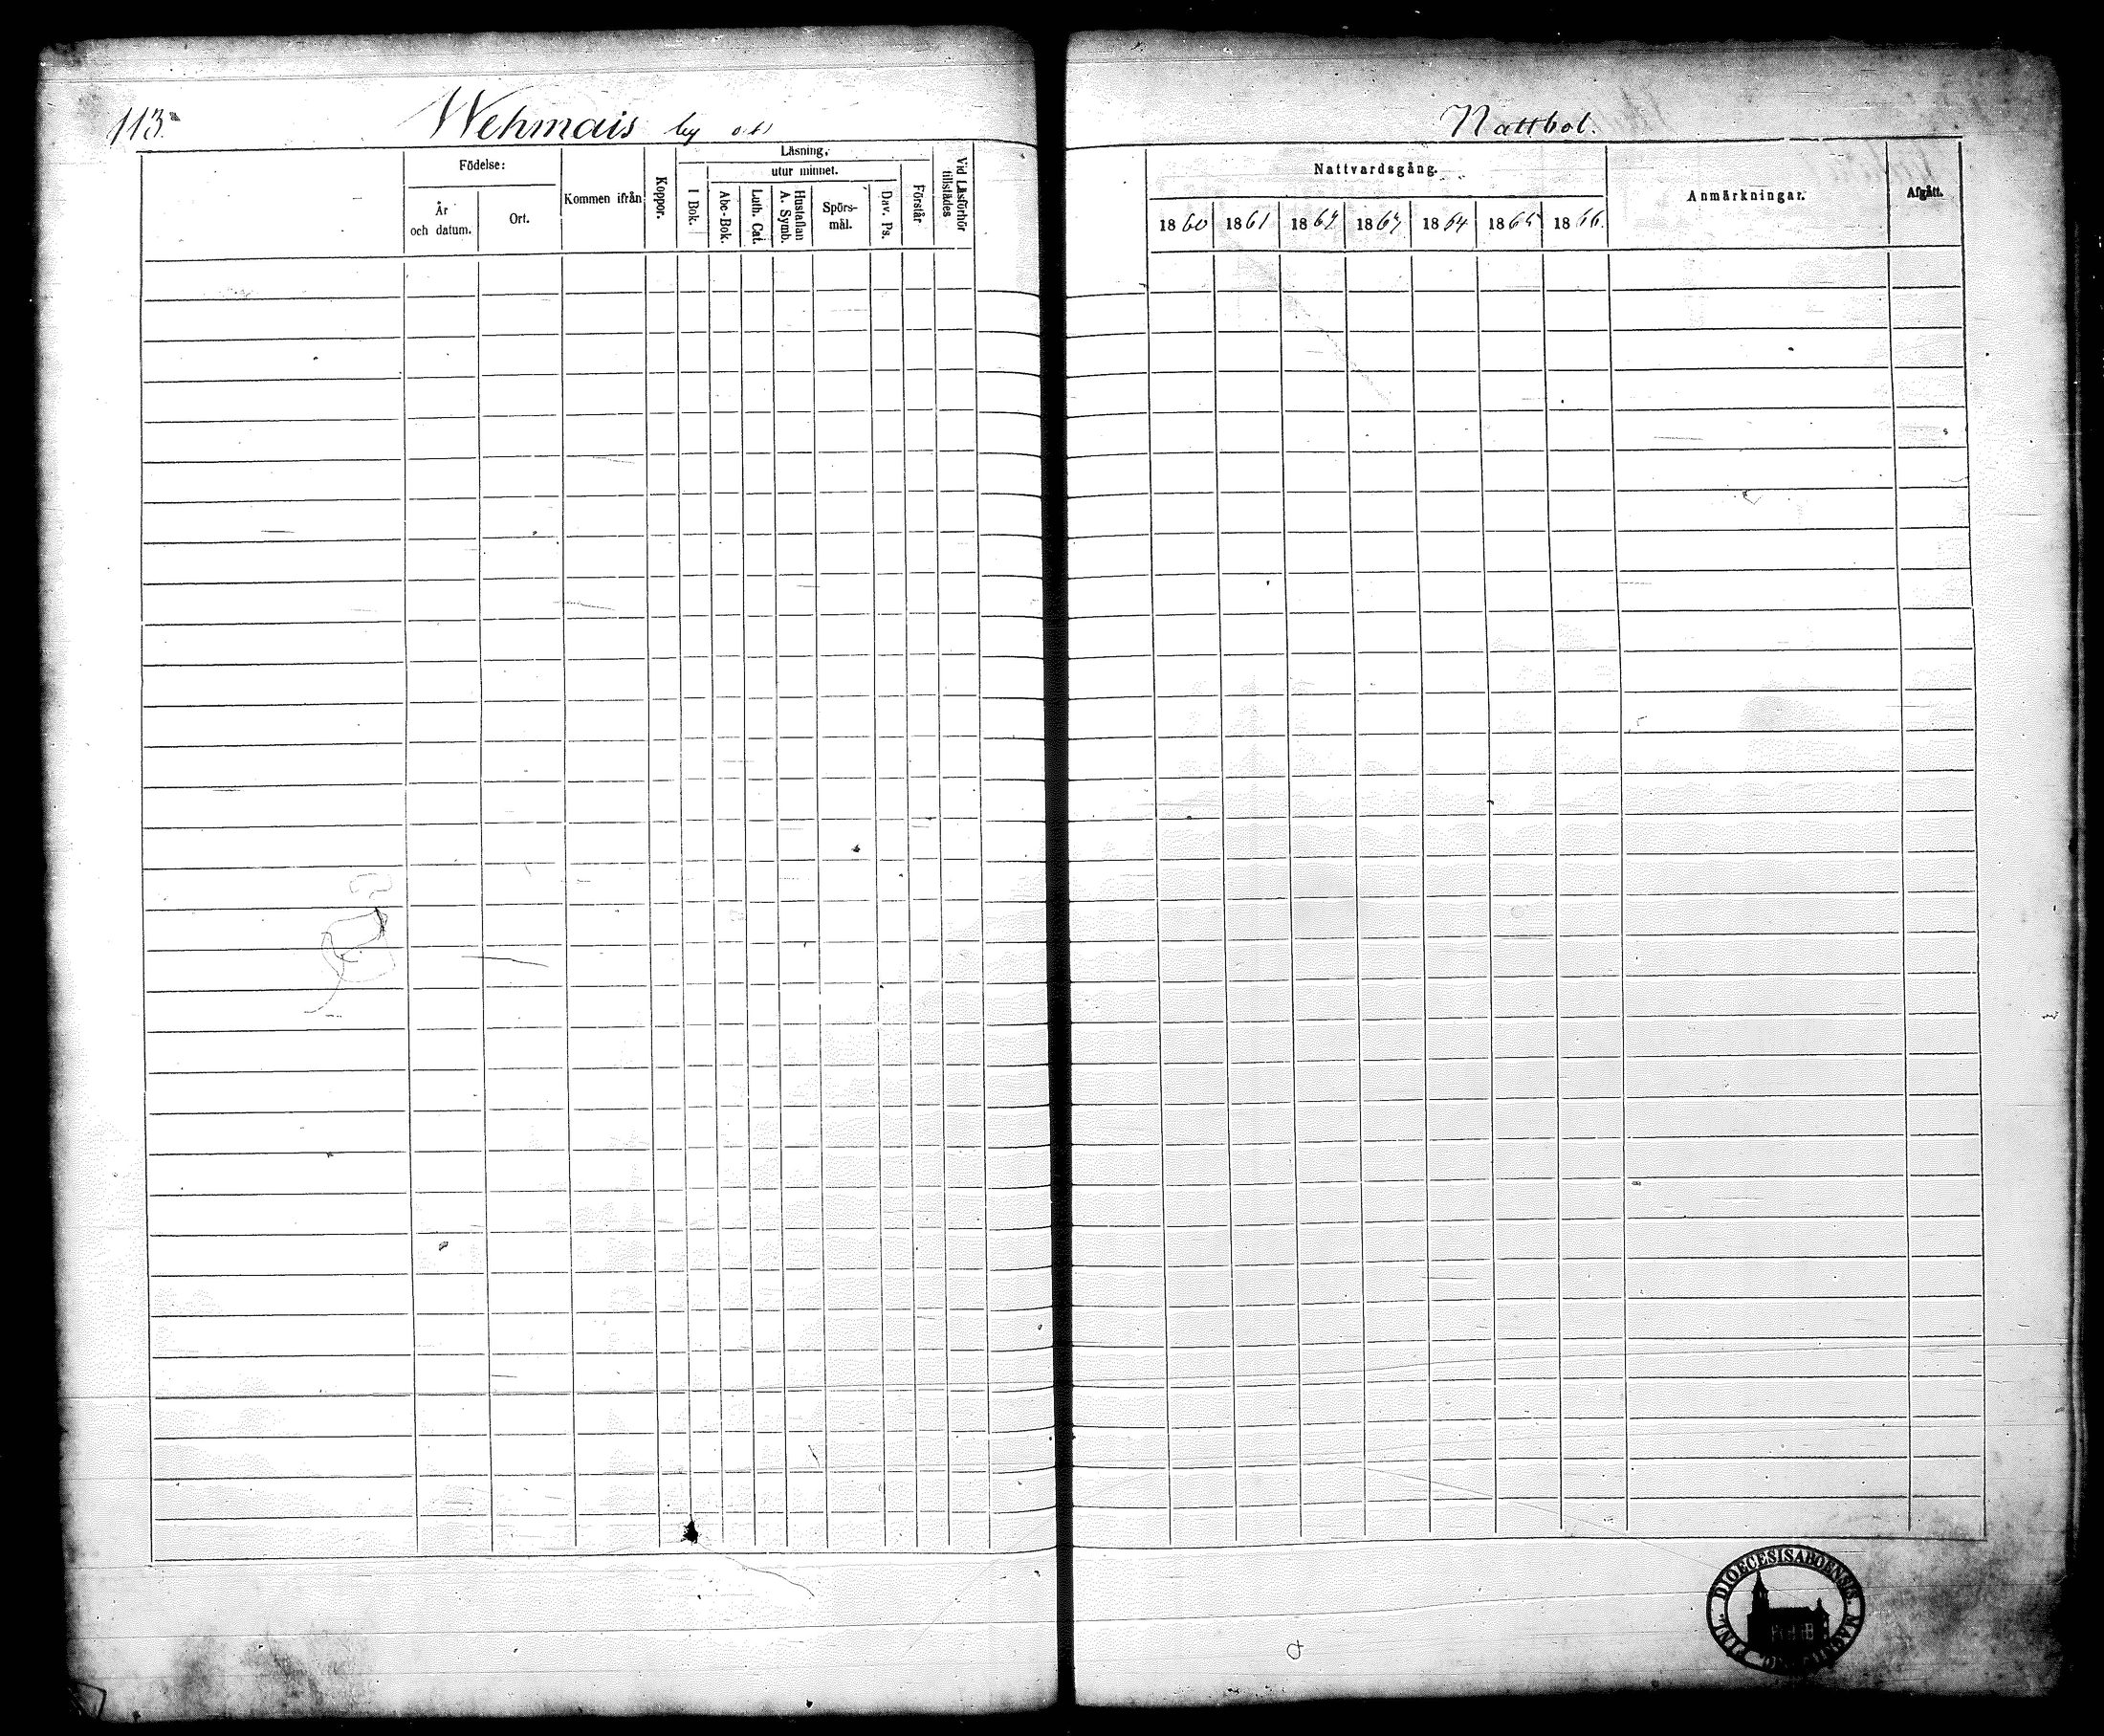 113.
Wehmais by
Födelse:
År
och datum.
Ort.
Kommen ifrån
Koppor.
Läsning.
utur minnet.
I Bok.
Abc-Bok.
Luth. Cat.
Hustaflan
A. Symb.
Spörs-
mål.
Dav. Ps.
Förstår
Vid Läsförhör
tillstädes
Nattbol.
Nattvardsgång.
1860 1861 1864 1865 1866.
Anmärkningar.
Afgått.
DIOECESIS ABOENSIS